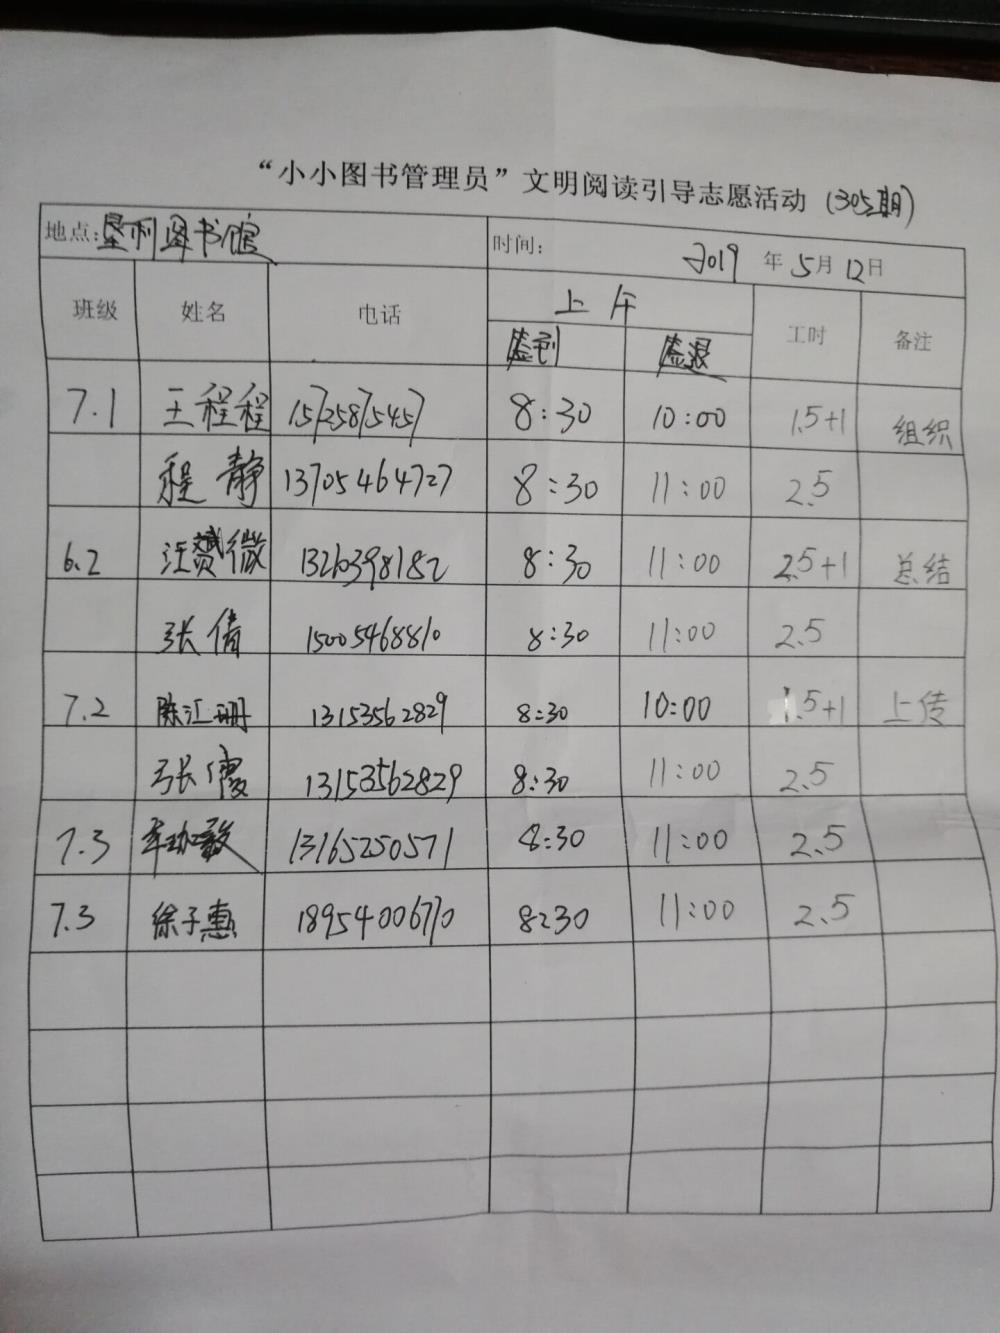 “小小图书管理员”文明阅读引导志愿活动（305期）
地点：垦利图书馆 时间： 2019 年 5 月 12 日
班级 姓名 电话 上午 工时 备注
签到 签退
7.1 王程程 15725875457 8:30 10:00 1.5+1 组织
程静 13705464727 8:30 11:00 2.5
6.2 汪赟微 13260398182 8:30 11:00 2.5+1 总结
张倩 15005468810 8:30 11:00 2.5
7.2 陈汇珊 13153562829 8:30 10:00 1.5+1 上传
张 13153562829 8:30 11:00 2.5
7.3 13165250571 8:30 11:00 2.5
7.3 徐子惠 18954006770 8:30 11:00 2.5